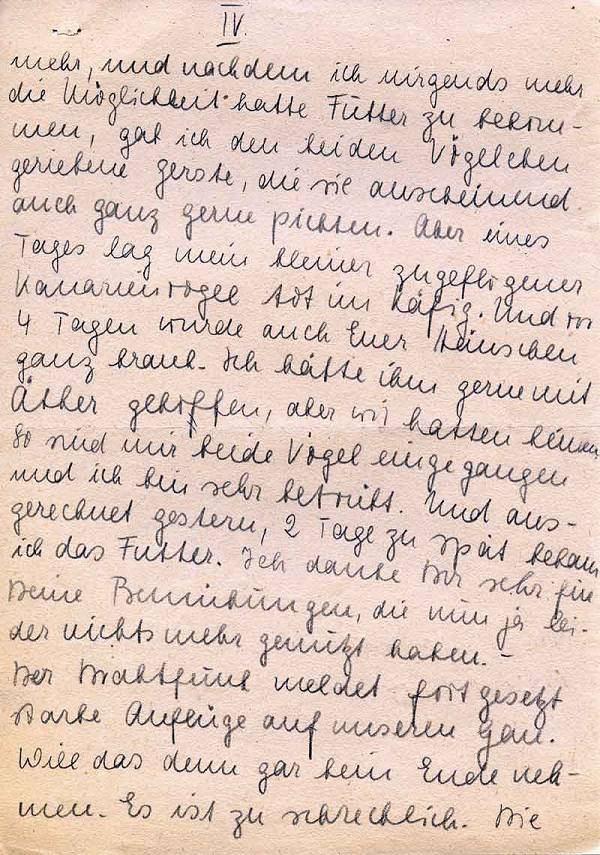 IV.
mehr, und nachdem ich nirgends mehr
die Möglichkeit hatte Futter zu bekom-
men, gab ich den beiden Vögelchen
geriebene Gerste, die sie anscheinend
auch ganz gerne pickten. Aber eines
Tages lag mein kleiner zugeflogener
Kanarienvogel tot im Käfig. Und vor
4 Tagen wurde auch Euer Hänschen
ganz krank. Ich hätte ihm gerne mit
Äther geholfen, aber wir hatten keinen
So sind mir beide Vögel eingegangen
und ich bin sehr betrübt. Und aus-
gerechnet gestern, 2 Tage zu spät bekam
ich das Futter. Ich danke Dir sehr für
Deine Bemühungen, die nun ja lei-
der nichts mehr genützt haben. -
Der Drahtfunk meldet fortgesetzt
starke Anflüge auf unseren Gau.
Will das denn gar kein Ende neh-
men. Es ist zu schrecklich. Die